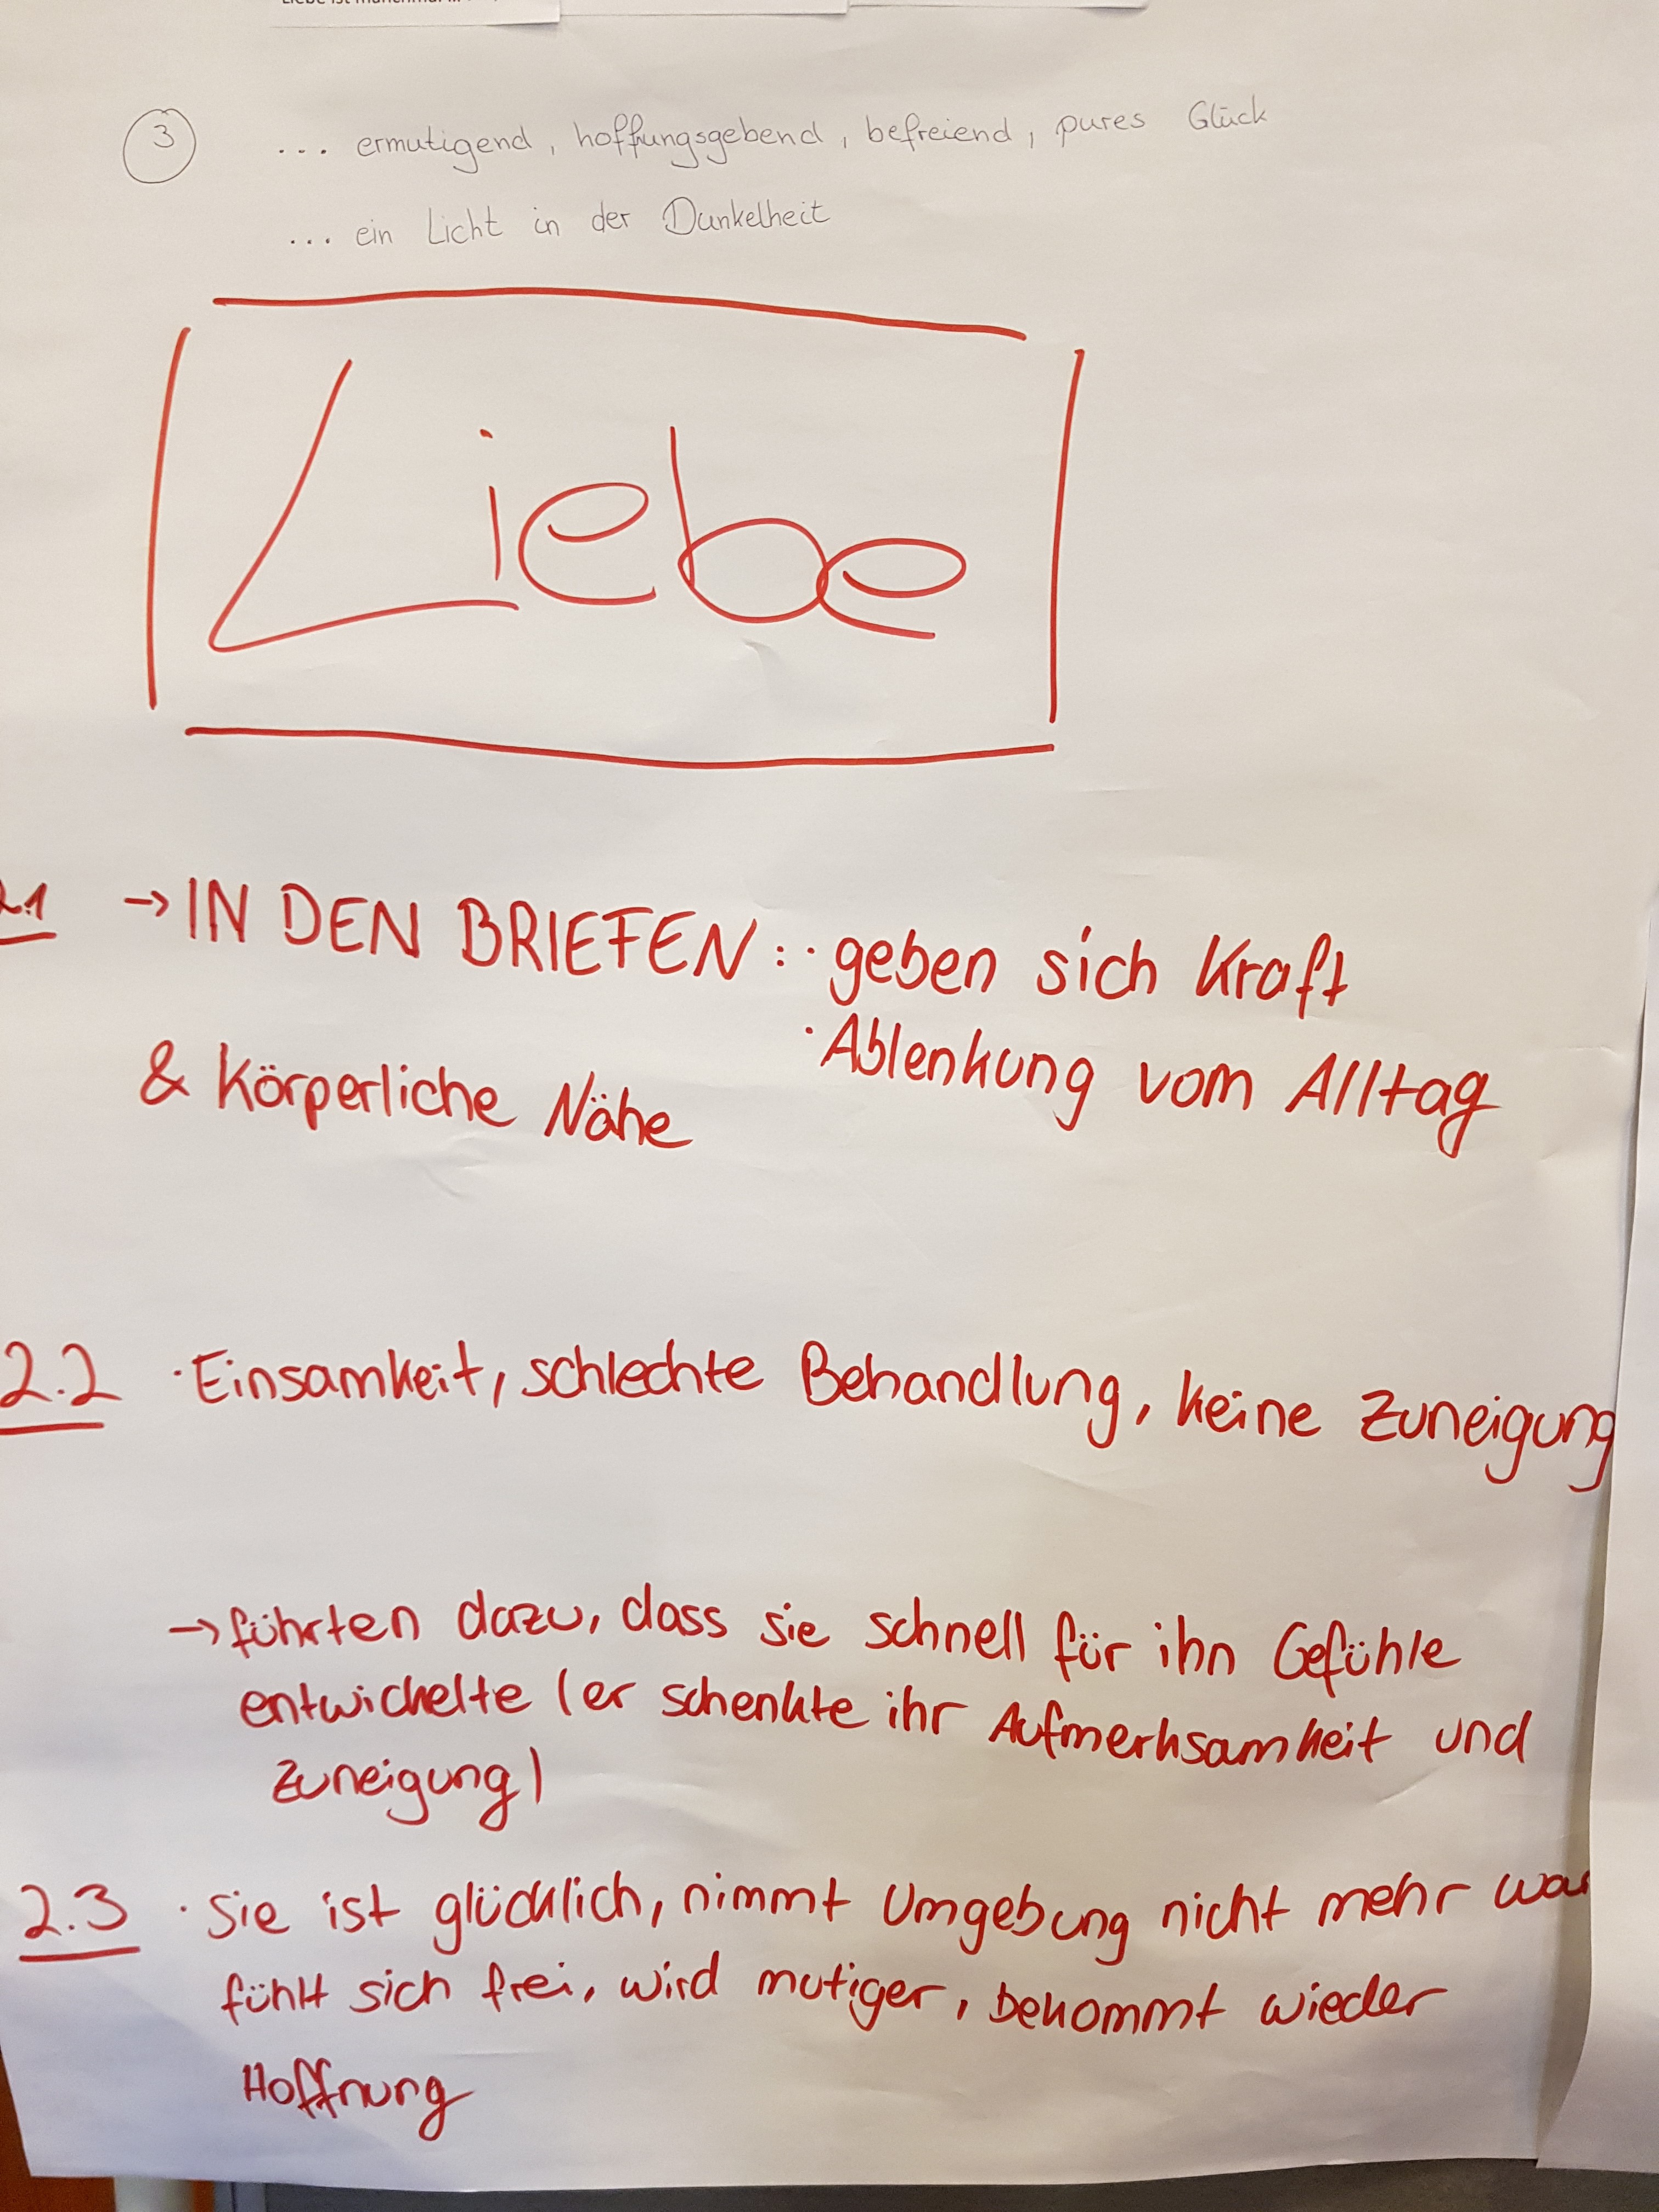 Liebe ist manchmal ...
3 ... ermutigend, hoffnungsgebend, befreiend, pures Glück
... ein Licht in der Dunkelheit
Liebe
2.1 → IN DEN BRIEFEN: · geben sich Kraft
· Ablenkung vom Alltag
& Körperliche Nähe
2.2 · Einsamkeit, schlechte Behandlung, keine Zuneigung
→ führten dazu, dass sie schnell für ihn Gefühle
entwickelte (er schenkte ihr Aufmerksamkeit und
Zuneigung)
2.3 · Sie ist glücklich, nimmt Umgebung nicht mehr
fühlt sich frei, wird mutiger, bekommt wieder
Hoffnung